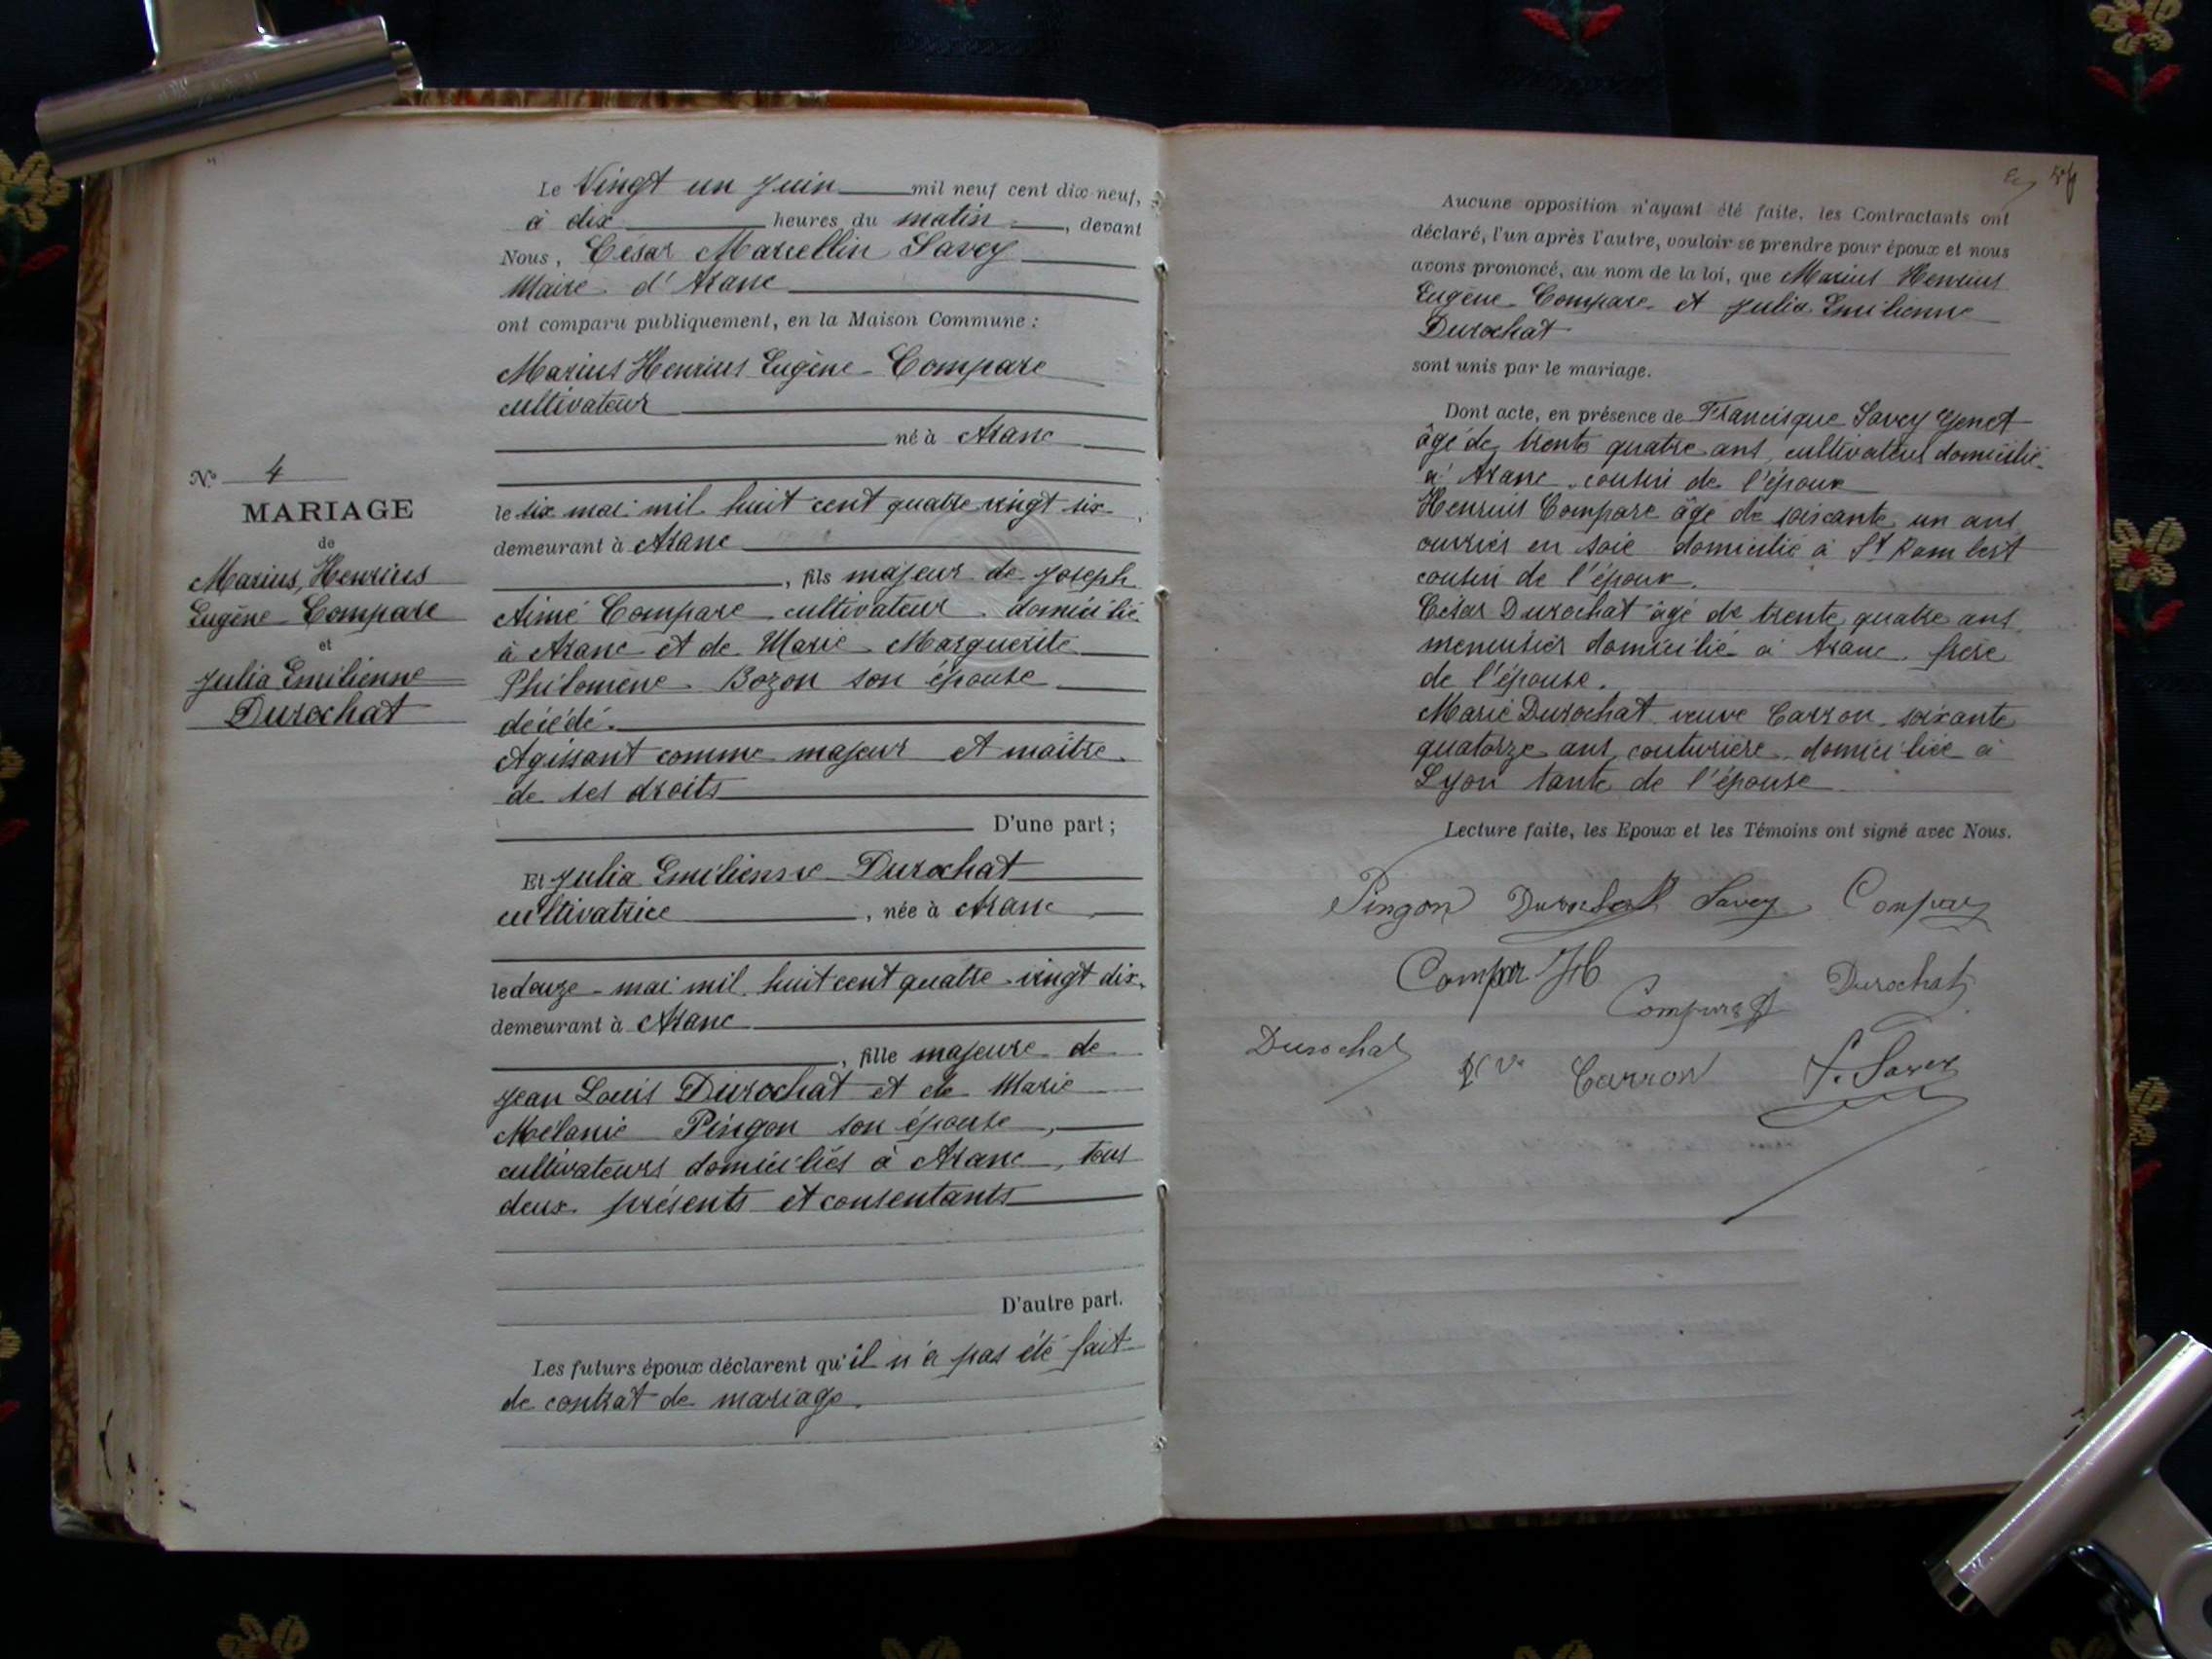 Le Vingt un Juin mil neuf cent dix-neuf,
à dix heures du matin, devant
Nous, César Marcellin Savey
Maire d'Aranc
ont comparu publiquement, en la Maison Commune :
Marius Henrius Eugène Compare
cultivateur
né à Aranc
le six mai mil huit cent quatre vingt six
demeurant à Aranc
, fils majeur de Joseph
Aimé Compare cultivateur domicilié
à Aranc et de Marie Marguerite
Philomène Bozon son épouse
décédé.
Agissant comme majeur et maître
de ses droits
D'une part ;
Et Julia Emilienne Durochat
cultivatrice, née à Aranc
le douze mai mil huit cent quatre-vingt dix,
demeurant à Aranc
, fille majeure de
Jean Louis Durochat et de Marie
Mélanie Pingon son épouse,
cultivateurs domiciliés à Aranc, tous
deux présents et consentants
D'autre part.
Les futurs époux déclarent qu'il n'a pas été fait
de contrat de mariage.
N° 4
MARIAGE
de
Marius, Henrius
Eugène Compare
et
Julia Emilienne
Durochat
Aucune opposition n'ayant été faite, les Contractants ont
déclaré, l'un après l'autre, vouloir se prendre pour époux et nous
avons prononcé, au nom de la loi, que Marius Henrius
Eugène Compare et Julia Emilienne
Durochat
sont unis par le mariage.
Dont acte, en présence de Francisque Savey Genet
âgé de trente quatre ans, cultivateur domicilié
à Aranc, cousin de l'époux
Henrius Compare âgé de soixante un ans
ouvrier en soie domicilié à St Rambert
cousin de l'époux.
César Durochat âgé de trente quatre ans
menuisier domicilié à Aranc, frère
de l'épouse.
Marie Durochat veuve Carron, soixante
quatorze ans, couturière domiciliée à
Lyon tante de l'épouse
Lecture faite, les Epoux et les Témoins ont signé avec Nous.
Pingon Durochat Savey Compare
Compar H
Durochat
Compare
Durochat
Vve Carron
F. Savey